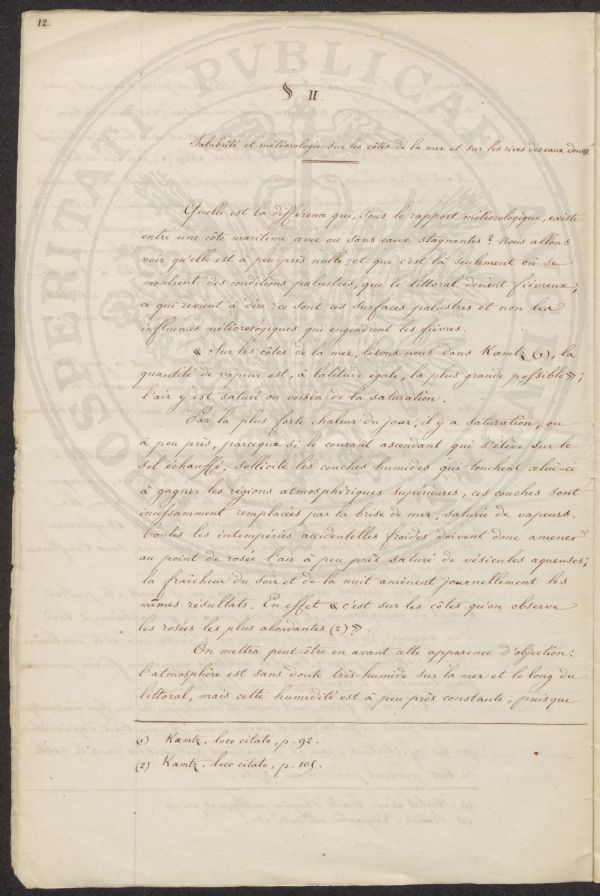 12.
PROSPERITATI PVBLICAE
§ II.
Salubrité et météorologie sur les côtes de la mer et sur les rives des eaux douces
Quelle est la différence qui, sous le rapport météorologique, existe
entre une côte maritime avec ou sans eaux stagnantes ? Nous allons
voir qu'elle est à peu près nulle, et que c'est là seulement où se
montrent des conditions palustres, que le littoral devient fiévreux ;
ce qui revient à dire : ce sont ces surfaces palustres et non les
influences météorologiques qui engendrent les fièvres.
« Sur les côtes de la mer, lisons nous dans Kæmtz (1), la
quantité de vapeur est, à latitude égale, la plus grande possible » ;
l'air y est saturé ou voisin de la saturation.
Par la plus forte chaleur du jour, il y a saturation, ou
à peu près, parceque si le courant ascendant qui s'élève sur le
sol échauffé, sollicite les couches humides qui touchent celui-ci
à gagner les régions atmosphériques supérieures, ces couches sont
incessamment remplacées par la brise de mer, saturée de vapeurs.
Toutes les intempéries accidentelles froides doivent donc amener
au point de rosée l'air à peu près saturé de vésicules aqueuses ;
la fraîcheur du soir et de la nuit amènent journellement les
mêmes résultats. En effet « c'est sur les côtes qu'on observe
les rosées les plus abondantes (2) ».
On mettra peut-être en avant cette apparence d'objection :
l'atmosphère est sans doute très-humide sur la mer et le long du
littoral, mais cette humidité est à peu près constante, puisque
(1) Kæmtz. loco citato, p. 92.
(2) Kæmtz. loco citato, p. 105.